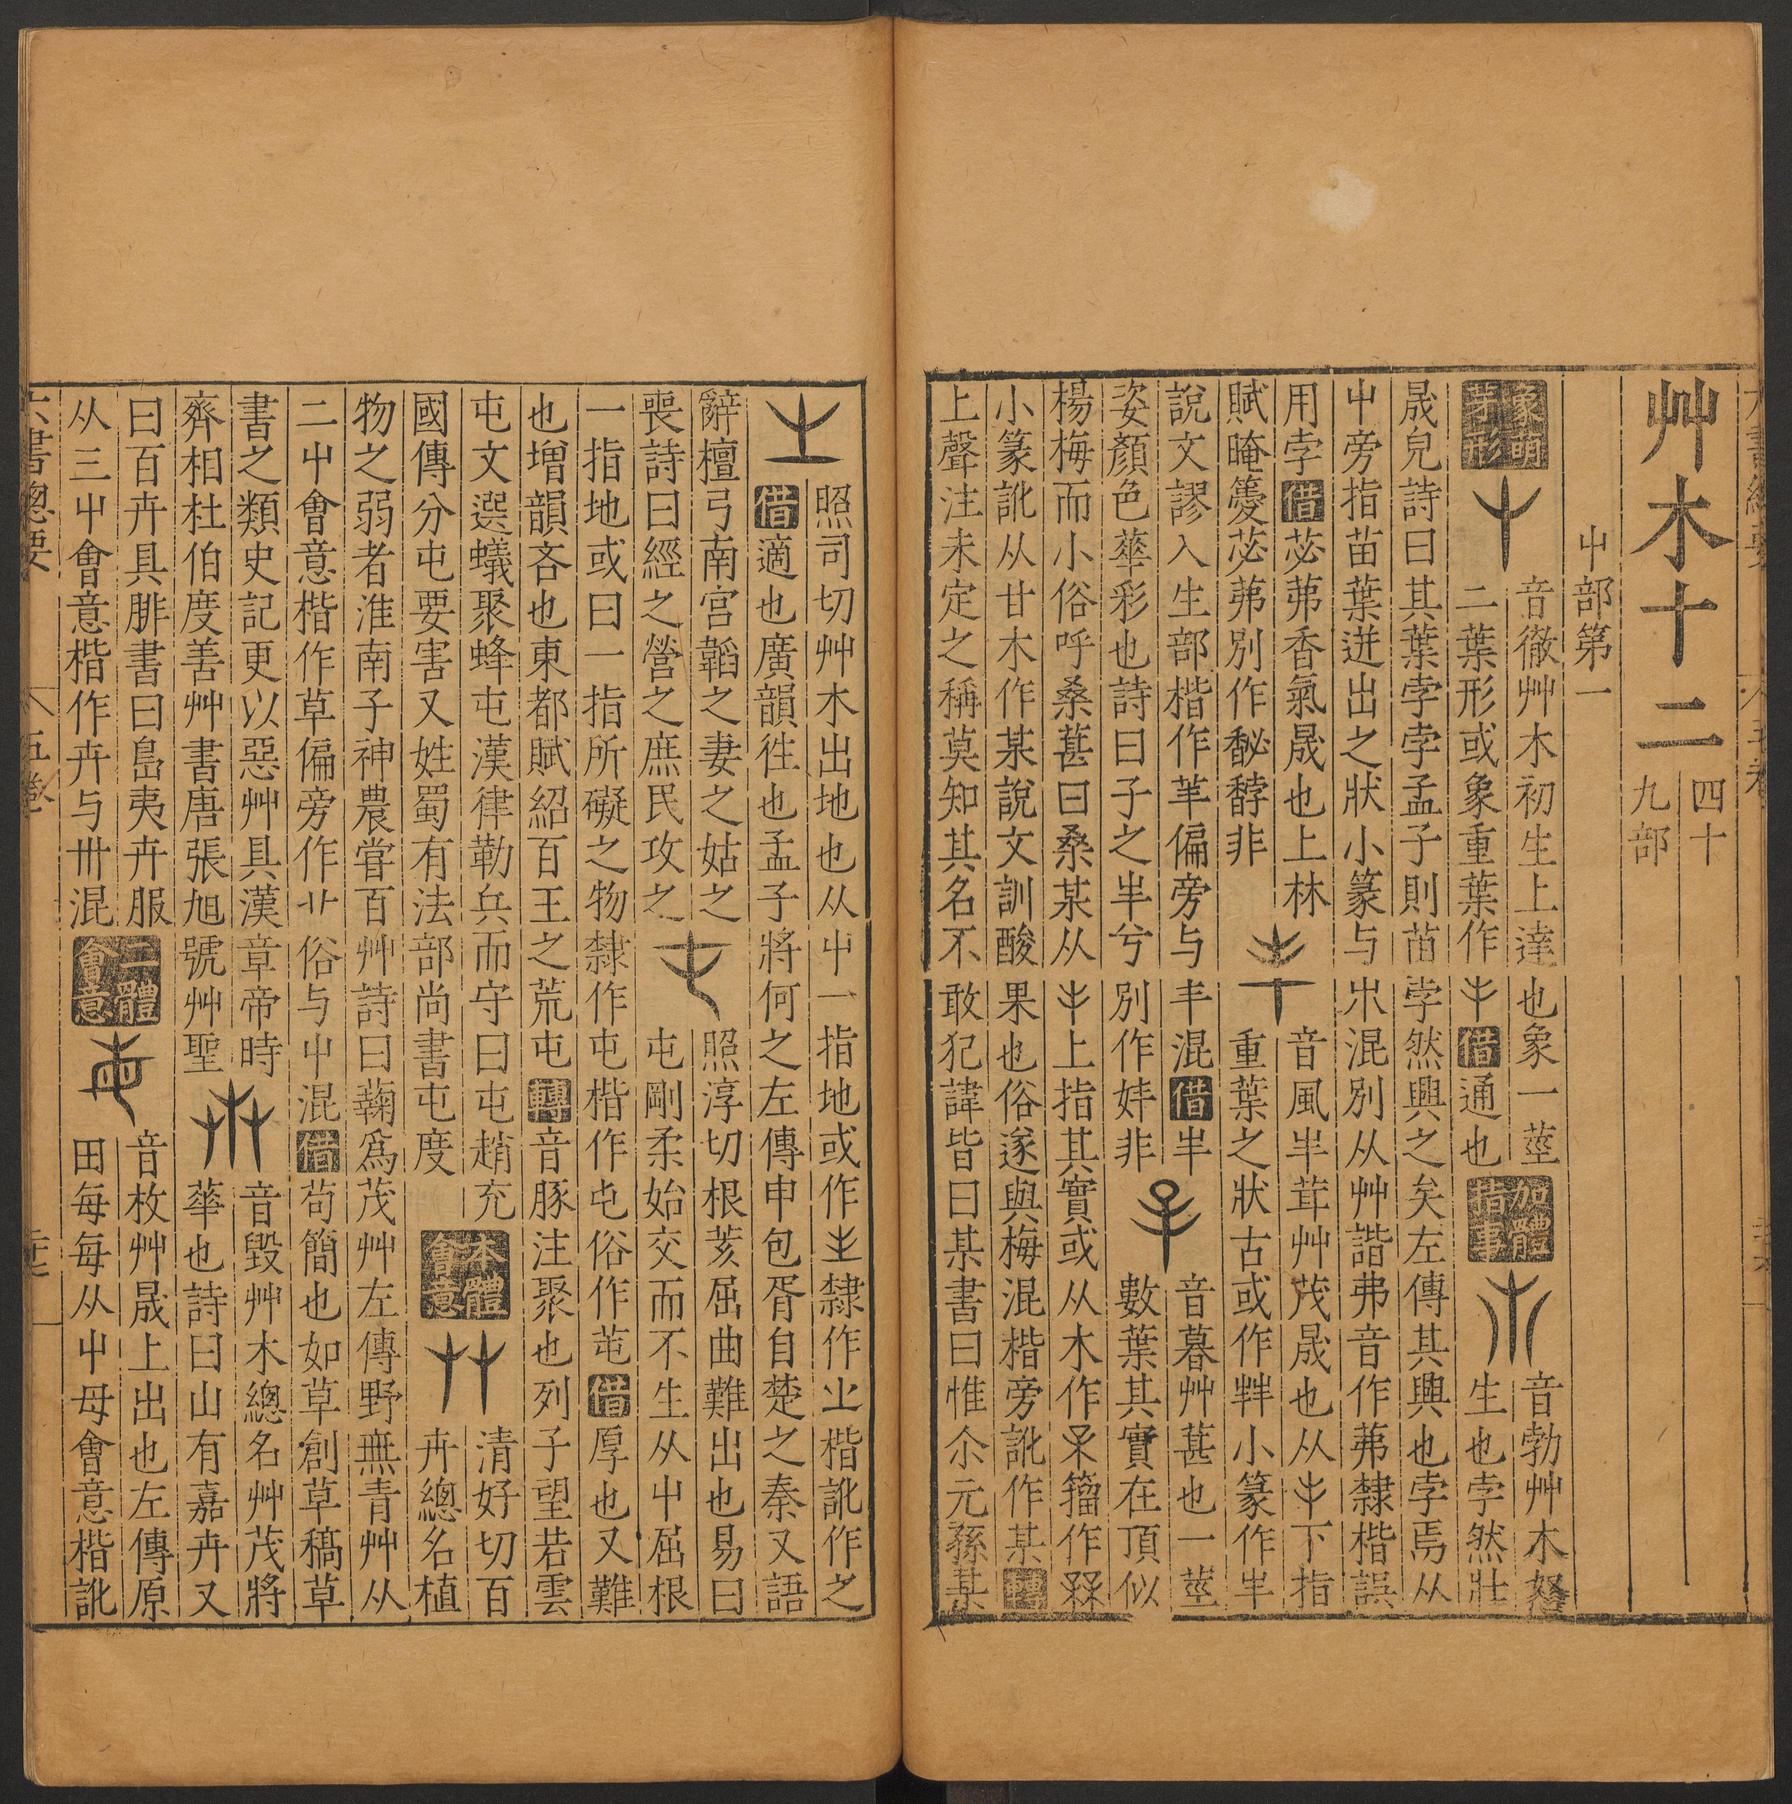 艸木十二
四十
九部
屮部第一
象萌
芽形
音徹艸木初生上達
也象一莖
二葉形或象重葉作
借通也
加體
指事
音勃艸木怒
生也孛然壯
晟皃詩曰其葉孛孛孟子則苗
孛然興之矣左傳其興也孛焉从
屮旁指苗葉迸出之狀小篆与
𣎵混別从艸諧弗音作茀隸楷誤
用孛借苾茀香氣晟也上林
賦晻薆苾茀別作馝馞非
音風丰茸艸茂晟也从
下指
重葉之狀古或作
小篆作丰
說文謬入生部楷作丰偏旁与
丰混借丰
姿顏色華彩也詩曰子之丰兮
別作妦非
音暮艸葚也一莖
數葉其實在頂似
楊梅而小俗呼桑葚曰桑某从
上指其實或从木作
籀作
小篆訛从甘木作某說文訓酸
果也俗遂與梅混楷旁訛作某轉
上聲注未定之稱莫知其名不
敢犯諱皆曰某書曰惟尒元孫某
照司切艸木出地也从
屮一指地或作
隸作㞢楷訛作之
借適也廣韻徃也孟子
將何之左傳申包胥自楚之秦又語
辭檀弓南宮韜之妻之姑之
喪詩曰經之營之庶民攻之
照淳切根荄屈曲難出也易曰
屯剛柔始交而不生从屮屈根
一指地或曰一指所礙之物
隸作屯楷作屯俗作芚借厚也又難
也增韻吝也東都賦紹百王之荒屯轉音豚注聚也列子望若雲
屯文選蟻聚蜂屯漢律勒兵而守曰屯趙充
國傳分屯要害又姓蜀有法部尚書屯度
本體
會意
清好切百
卉總名植
物之弱者淮南子神農嘗百艸詩曰蘜爲茂艸左傳野無青艸从
二屮會意楷作草偏旁作艹俗与屮混借苟簡也如草創草稿草
書之類史記更以惡艸具漢章帝時
齊相杜伯度善艸書唐張旭號艸聖
音毀艸木總名艸茂將
華也詩曰山有嘉卉又
曰百卉具腓書曰島夷卉服
从三屮會意楷作卉与卅混
二體
會意
音枚艸晟上出也左傳原
田每每从屮母會意楷訛
六書總要
五卷